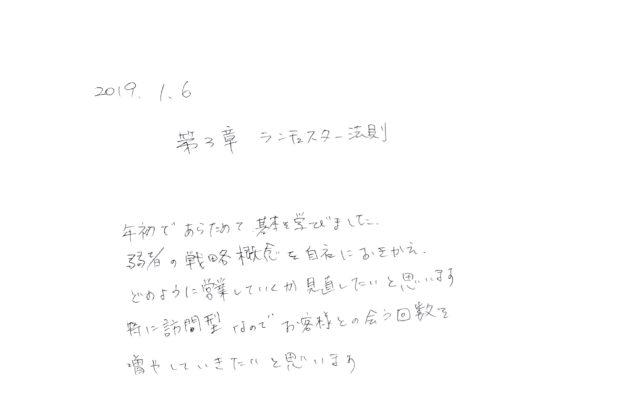 2019.1.6
第3章 ランチェスター法則
年初であらためて基本を学びました。
弱者の戦略概念を自社におきかえ、
どのように営業していくか見直したいと思います
特に訪問型なのでお客様との会う回数を
増やしていきたいと思います